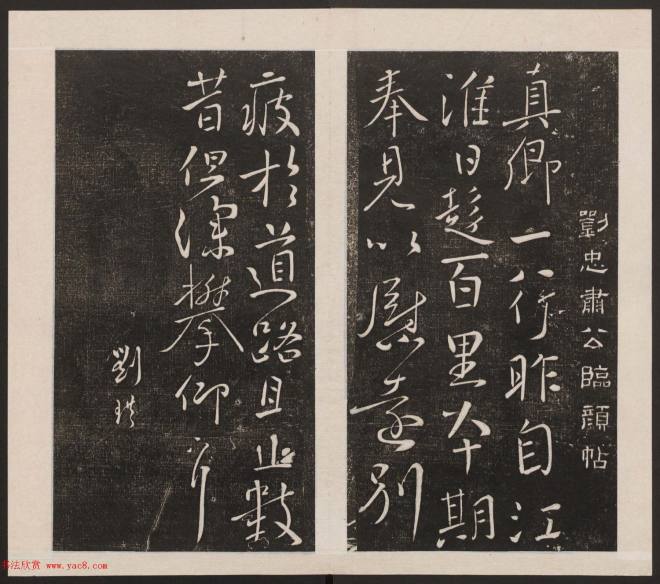 劉忠肅公臨顏帖
真卿一八行昨自江
淮日趍百里夲期
奉見以慰遠別
疲於道路且止數
昔但深攀仰
劉珙
书法欣赏 www.yac8.com